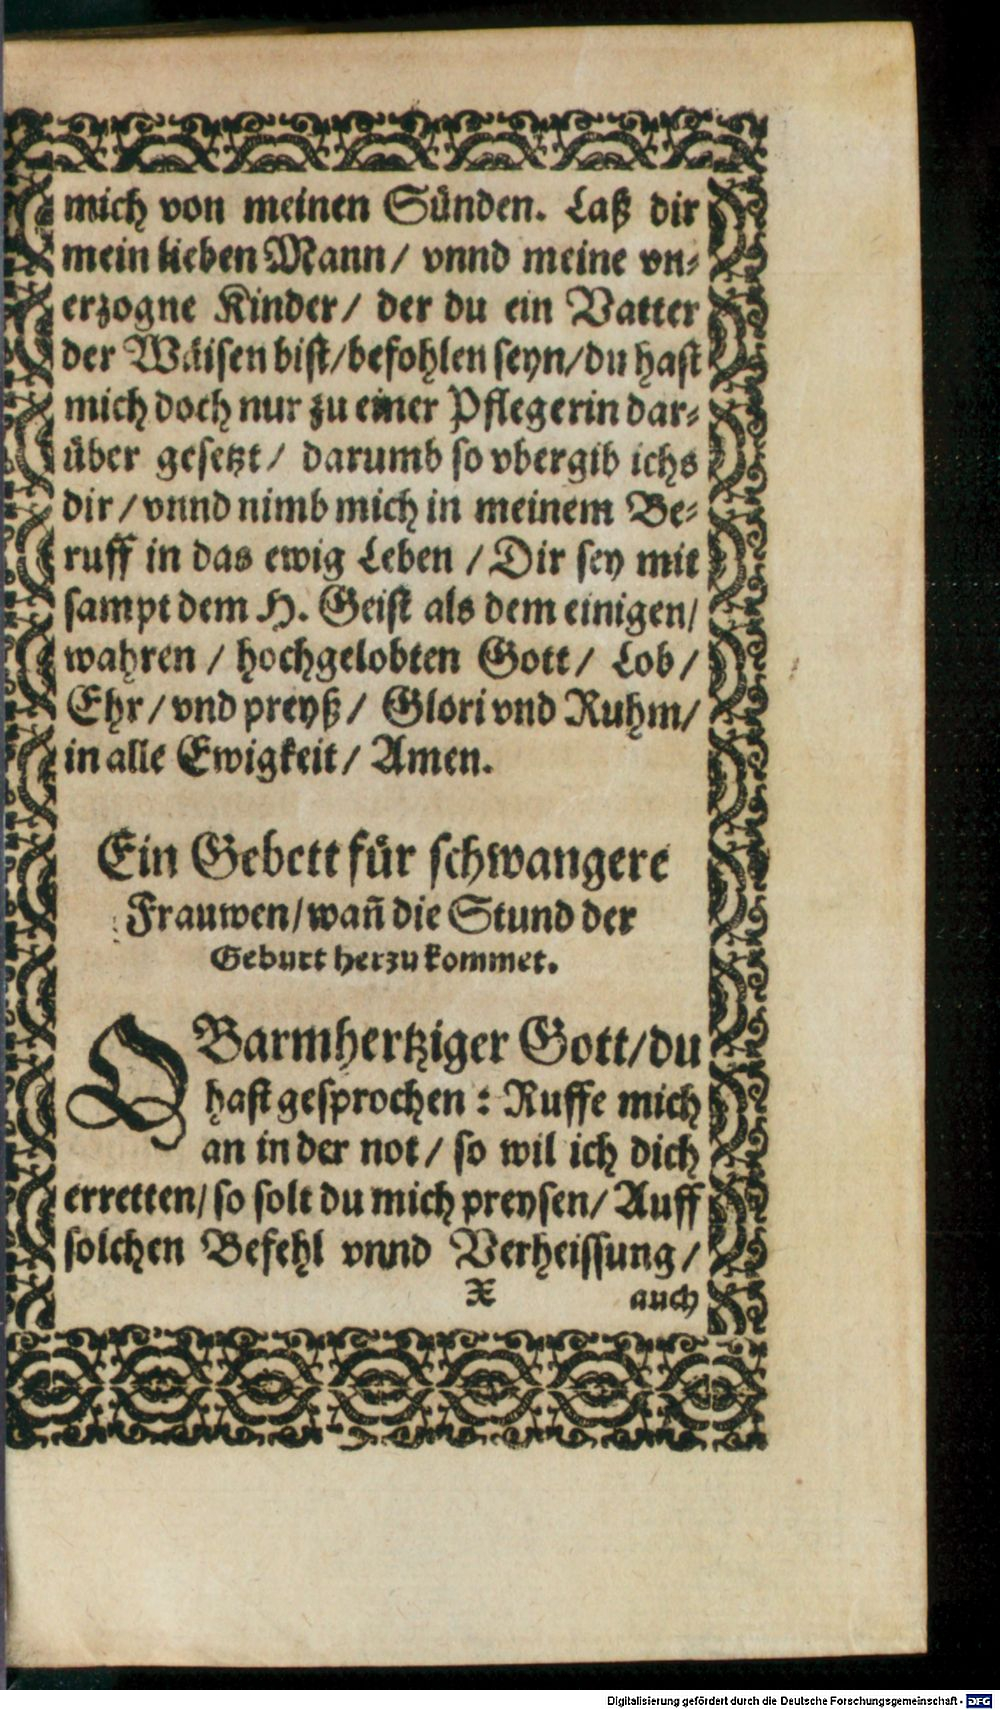 mich von meinen Sünden. Laß dir
mein lieben Mann / vnnd meine vn⸗
erzogne Kinder / der du ein Vatter
der Wäisen bist / befohlen seyn / du hast
mich doch nur zu einer Pflegerin dar⸗
über gesetzt / darumb so vbergib ichs
dir / vnnd nimb mich in meinem Be⸗
ruff in das ewig Leben / Dir sey mit
sampt dem H. Geist als dem einigen /
wahren / hochgelobten Gott / Lob /
Ehr / vnd preyß / Glori vnd Ruhm /
in alle Ewigkeit / Amen.
Ein Gebett für schwangere
Frauwen / wañ die Stund der
Geburt herzu kommet.
O Barmhertziger Gott / du
hast gesprochen : Ruffe mich
an in der not / so wil ich dich
erretten / so solt du mich preysen / Auff
solchen Befehl vnnd Verheissung /
X auch
Digitalisierung gefördert durch die Deutsche Forschungsgemeinschaft - DFG